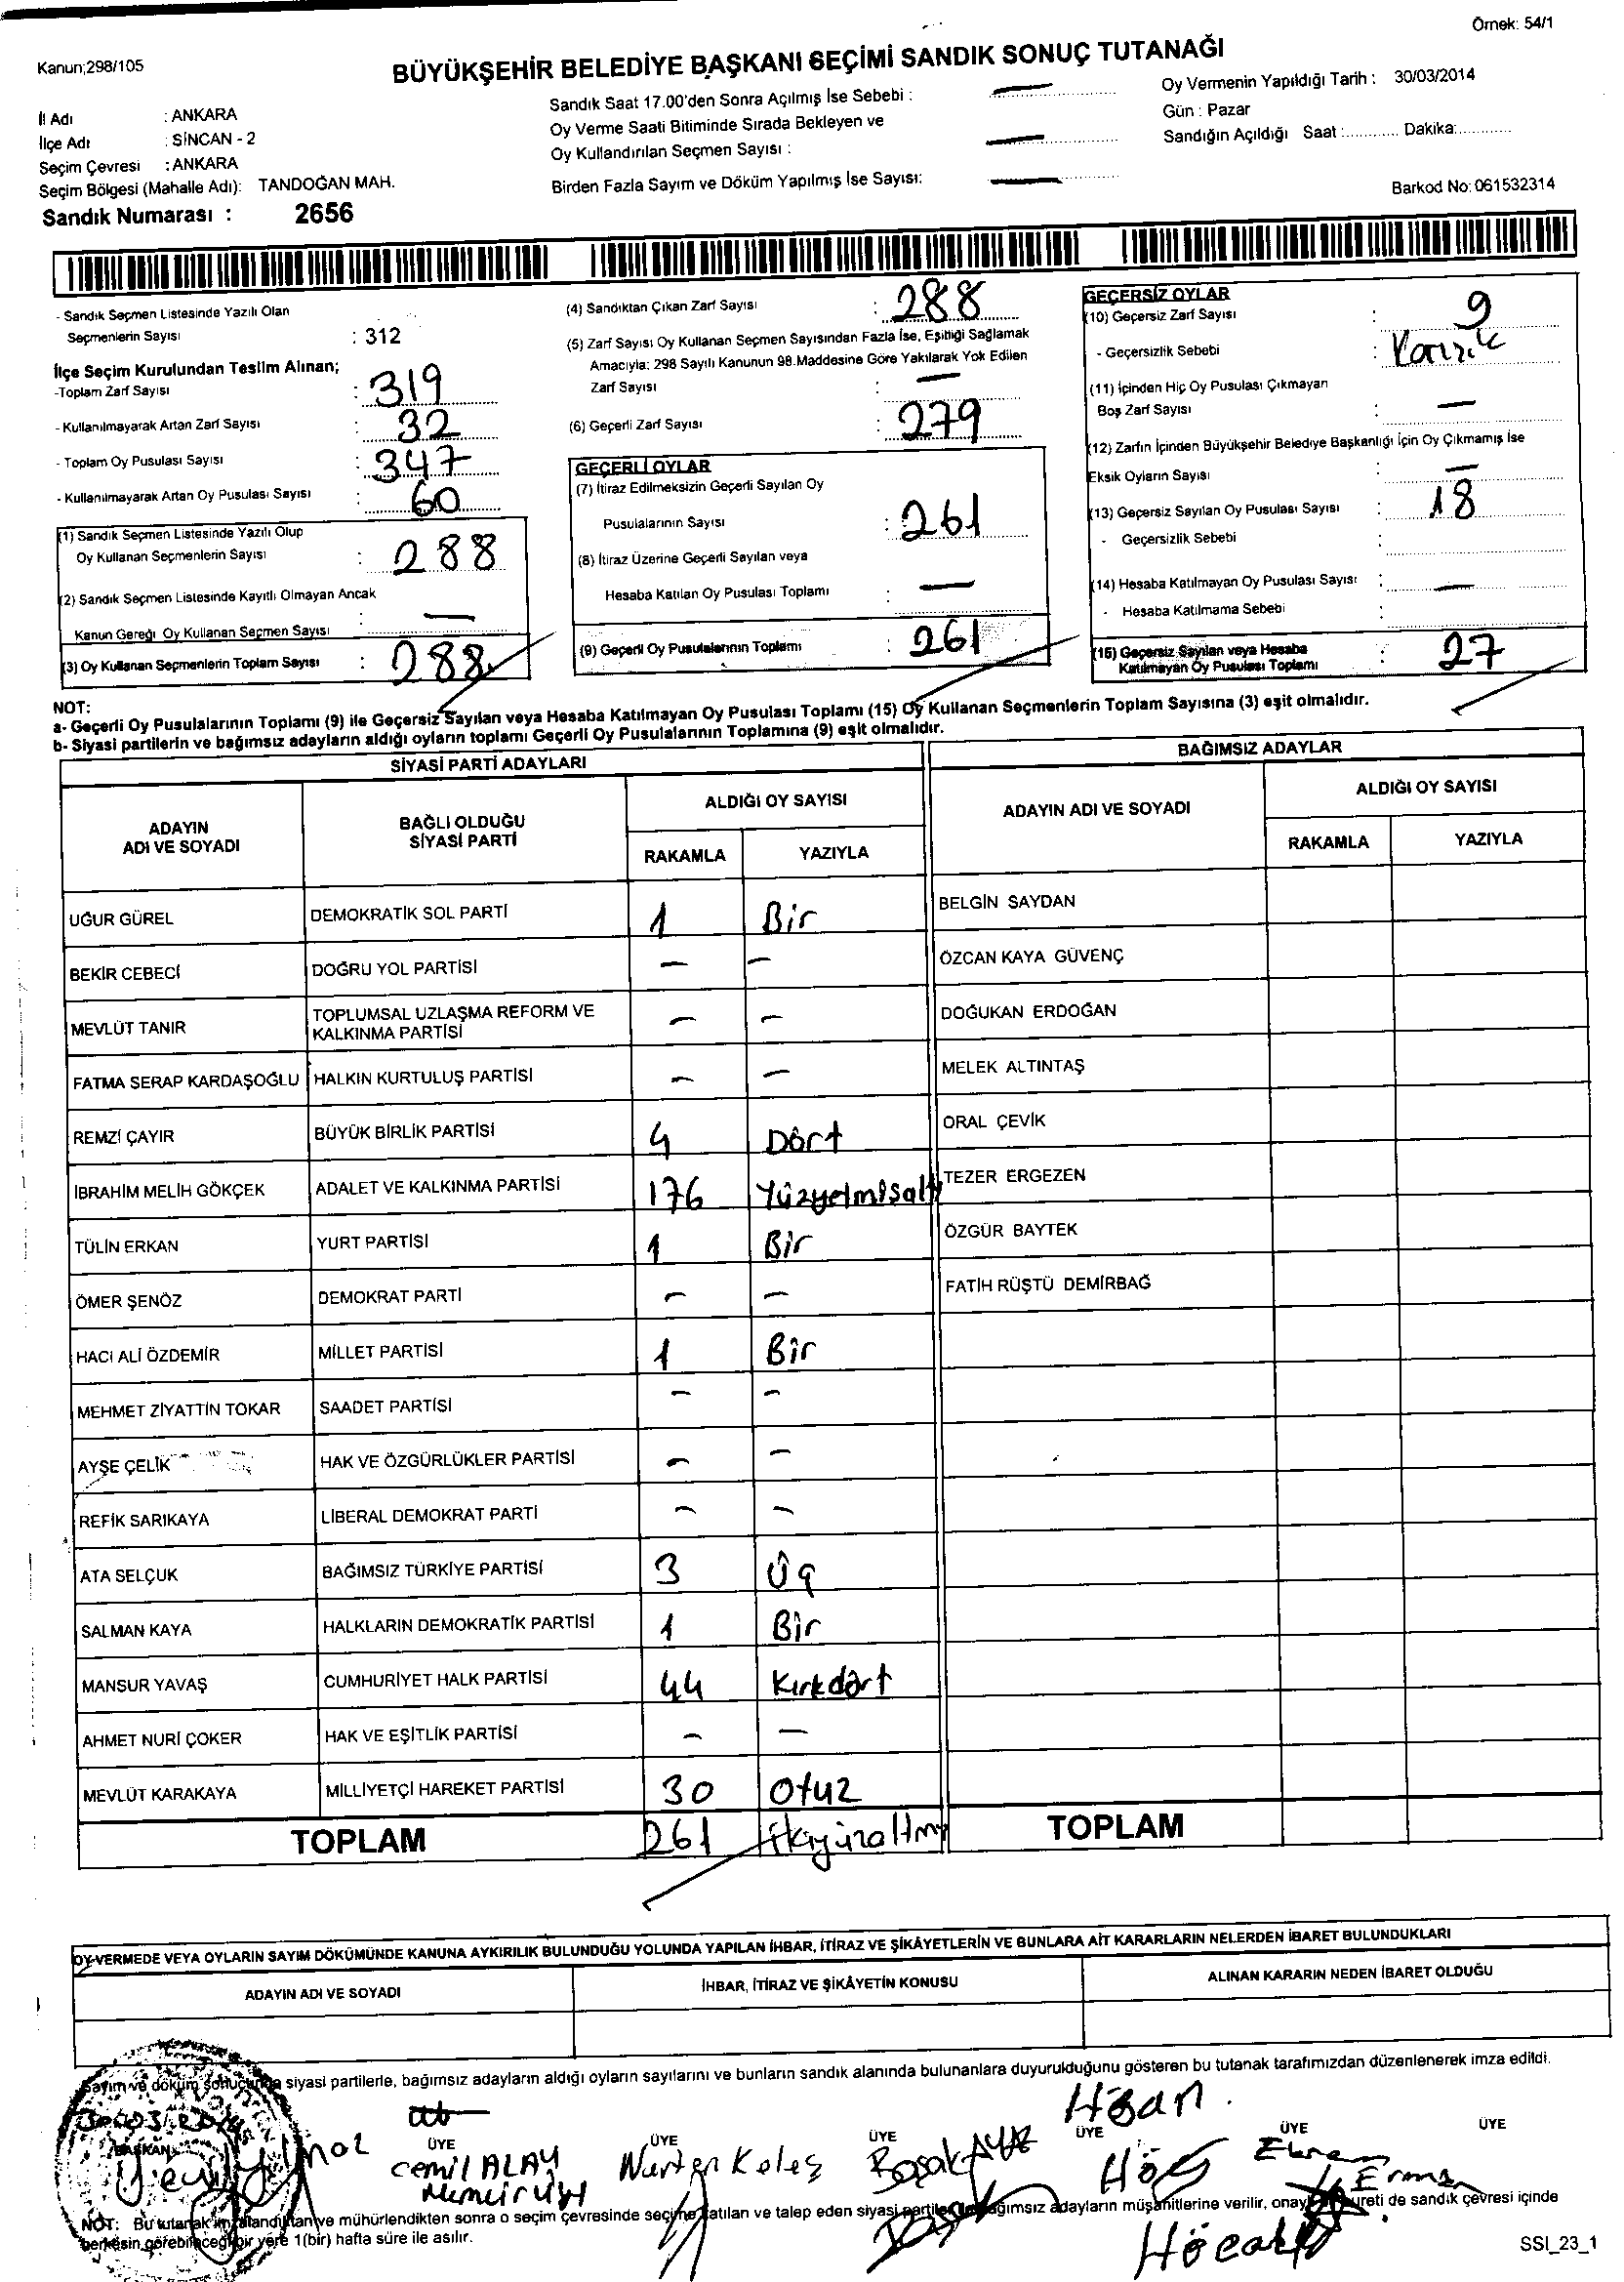 Örnek: 54/1
Kanun;298/105
BÜYÜKŞEHİR BELEDİYE BAŞKANI SEÇİMİ SANDIK SONUÇ TUTANAĞI
İl Adı : ANKARA
İlçe Adı : SİNCAN - 2
Seçim Çevresi : ANKARA
Seçim Bölgesi (Mahalle Adı): TANDOĞAN MAH.
Sandık Numarası : 2656
Sandık Saat 17.00'den Sonra Açılmış İse Sebebi : —
Oy Verme Saati Bitiminde Sırada Bekleyen ve
Oy Kullandırılan Seçmen Sayısı : —
Birden Fazla Sayım ve Döküm Yapılmış İse Sayısı: —
Oy Vermenin Yapıldığı Tarih : 30/03/2014
Gün : Pazar
Sandığın Açıldığı Saat :............ Dakika:............
Barkod No: 061532314
- Sandık Seçmen Listesinde Yazılı Olan
Seçmenlerin Sayısı : 312
İlçe Seçim Kurulundan Teslim Alınan;
-Toplam Zarf Sayısı : 319
- Kullanılmayarak Artan Zarf Sayısı : 32
- Toplam Oy Pusulası Sayısı : 347
- Kullanılmayarak Artan Oy Pusulası Sayısı : 60
(1) Sandık Seçmen Listesinde Yazılı Olup
Oy Kullanan Seçmenlerin Sayısı : 288
(2) Sandık Seçmen Listesinde Kayıtlı Olmayan Ancak
Kanun Gereği Oy Kullanan Seçmen Sayısı —
(3) Oy Kullanan Seçmenlerin Toplam Sayısı : 288
(4) Sandıktan Çıkan Zarf Sayısı : 288
(5) Zarf Sayısı Oy Kullanan Seçmen Sayısından Fazla İse, Eşitliği Sağlamak
Amacıyla; 298 Sayılı Kanunun 98.Maddesine Göre Yakılarak Yok Edilen
Zarf Sayısı : —
(6) Geçerli Zarf Sayısı : 279
GEÇERLİ OYLAR
(7) İtiraz Edilmeksizin Geçerli Sayılan Oy
Pusulalarının Sayısı : 261
(8) İtiraz Üzerine Geçerli Sayılan veya
Hesaba Katılan Oy Pusulası Toplamı : —
(9) Geçerli Oy Pusulalarının Toplamı : 261
GEÇERSİZ OYLAR
(10) Geçersiz Zarf Sayısı : 9
- Geçersizlik Sebebi :
(11) İçinden Hiç Oy Pusulası Çıkmayan
Boş Zarf Sayısı : —
(12) Zarfın İçinden Büyükşehir Belediye Başkanlığı İçin Oy Çıkmamış İse
Eksik Oyların Sayısı : —
(13) Geçersiz Sayılan Oy Pusulası Sayısı : 18
- Geçersizlik Sebebi :
(14) Hesaba Katılmayan Oy Pusulası Sayısı : —
- Hesaba Katılmama Sebebi :
(15) Geçersiz Sayılan veya Hesaba
Katılmayan Oy Pusulası Toplamı : 27
NOT:
a- Geçerli Oy Pusulalarının Toplamı (9) ile Geçersiz Sayılan veya Hesaba Katılmayan Oy Pusulası Toplamı (15) Oy Kullanan Seçmenlerin Toplam Sayısına (3) eşit olmalıdır.
b- Siyasi partilerin ve bağımsız adayların aldığı oyların toplamı Geçerli Oy Pusulalarının Toplamına (9) eşit olmalıdır.
SİYASİ PARTİ ADAYLARI
ADAYIN ADI VE SOYADI BAĞLI OLDUĞU SİYASİ PARTİ ALDIĞI OY SAYISI
RAKAMLA YAZIYLA
UĞUR GÜREL DEMOKRATİK SOL PARTİ 1 Bir
BEKİR CEBECİ DOĞRU YOL PARTİSİ — —
MEVLÜT TANIR TOPLUMSAL UZLAŞMA REFORM VE KALKINMA PARTİSİ — —
FATMA SERAP KARDAŞOĞLU HALKIN KURTULUŞ PARTİSİ — —
REMZİ ÇAYIR BÜYÜK BİRLİK PARTİSİ 4 Dört
İBRAHİM MELİH GÖKÇEK ADALET VE KALKINMA PARTİSİ 176 Yüzyetmişaltı
TÜLİN ERKAN YURT PARTİSİ 1 Bir
ÖMER ŞENÖZ DEMOKRAT PARTİ — —
HACI ALİ ÖZDEMİR MİLLET PARTİSİ 1 Bir
MEHMET ZİYATTİN TOKAR SAADET PARTİSİ — —
AYŞE ÇELİK HAK VE ÖZGÜRLÜKLER PARTİSİ — —
REFİK SARIKAYA LİBERAL DEMOKRAT PARTİ — —
ATA SELÇUK BAĞIMSIZ TÜRKİYE PARTİSİ 3 Üç
SALMAN KAYA HALKLARIN DEMOKRATİK PARTİSİ 1 Bir
MANSUR YAVAŞ CUMHURİYET HALK PARTİSİ 44 Kırkdört
AHMET NURİ ÇOKER HAK VE EŞİTLİK PARTİSİ — —
MEVLÜT KARAKAYA MİLLİYETÇİ HAREKET PARTİSİ 30 Otuz
TOPLAM 261
BAĞIMSIZ ADAYLAR
ADAYIN ADI VE SOYADI ALDIĞI OY SAYISI
RAKAMLA YAZIYLA
BELGİN SAYDAN
ÖZCAN KAYA GÜVENÇ
DOĞUKAN ERDOĞAN
MELEK ALTINTAŞ
ORAL ÇEVİK
TEZER ERGEZEN
ÖZGÜR BAYTEK
FATİH RÜŞTÜ DEMİRBAĞ
TOPLAM
OY VERMEDE VEYA OYLARIN SAYIM DÖKÜMÜNDE KANUNA AYKIRILIK BULUNDUĞU YOLUNDA YAPILAN İHBAR, İTİRAZ VE ŞİKÂYETLERİN VE BUNLARA AİT KARARLARIN NELERDEN İBARET BULUNDUKLARI
ADAYIN ADI VE SOYADI İHBAR, İTİRAZ VE ŞİKÂYETİN KONUSU ALINAN KARARIN NEDEN İBARET OLDUĞU
Sayım ve döküm sonucunda siyasi partilerle, bağımsız adayların aldığı oyların sayılarını ve bunların sandık alanında bulunanlara duyurulduğunu gösteren bu tutanak tarafımızdan düzenlenerek imza edildi.
30/03/2014
BAŞKAN ÜYE ÜYE ÜYE ÜYE ÜYE ÜYE
Cemil ALAY Nurten Keleş Başak
NOT: Bu tutanak imzalandıktan ve mühürlendikten sonra o seçim çevresinde seçime katılan ve talep eden siyasi partiler ile bağımsız adayların müşahitlerine verilir, onaylı sureti de sandık çevresi içinde
herkesin görebileceği bir yere 1(bir) hafta süre ile asılır.
SSI_23_1